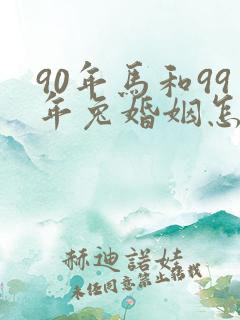 90年馬和99
年兔婚姻怎
赫迪諾娃
未经同意禁止转载